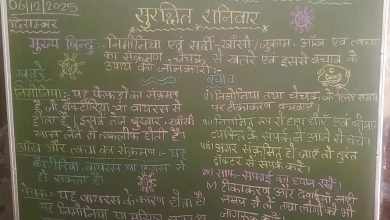 06/12/2025
दिसम्बर
सुरक्षित शनिवार
मुख्य बिन्दु :- निमोनिया एवं सर्दी-खाँसी / जुकाम, आँख एवं त्वचा
का संक्रमण - चेचक से खतरे एवं इससे बचाव के
उपाय की जानकारी।
खतरे
निमोनिया:- यह फेफड़ों का संक्रमण
है, जो बैक्टीरिया या वायरस से
होता है। इसमें तेज बुखार, खाँसी
सांस लेने में तकलीफ होती है।
आँख और त्वचा का संक्रमण:- यह
बैक्टीरिया, वायरस या फंगस से
हो सकता है।
चेचक:- यह वायरस के कारण होता है
यह निमोनिया
बचाव
निमोनिया तथा चेचक के लिए समय
पर टीकाकरण करवाएँ।
नियमित रूप से हाथ धोएँ एवं बीमार
व्यक्ति के संपर्क में आने से बचें।
अगर संक्रमित हो जाएँ तो तुरंत
डॉक्टर से संपर्क करें।
साफ-सफाई का ध्यान रखें।
टीकाकरण और दवाईयाँ सही
समय से लें तथा लोगों को
जागरूक करें